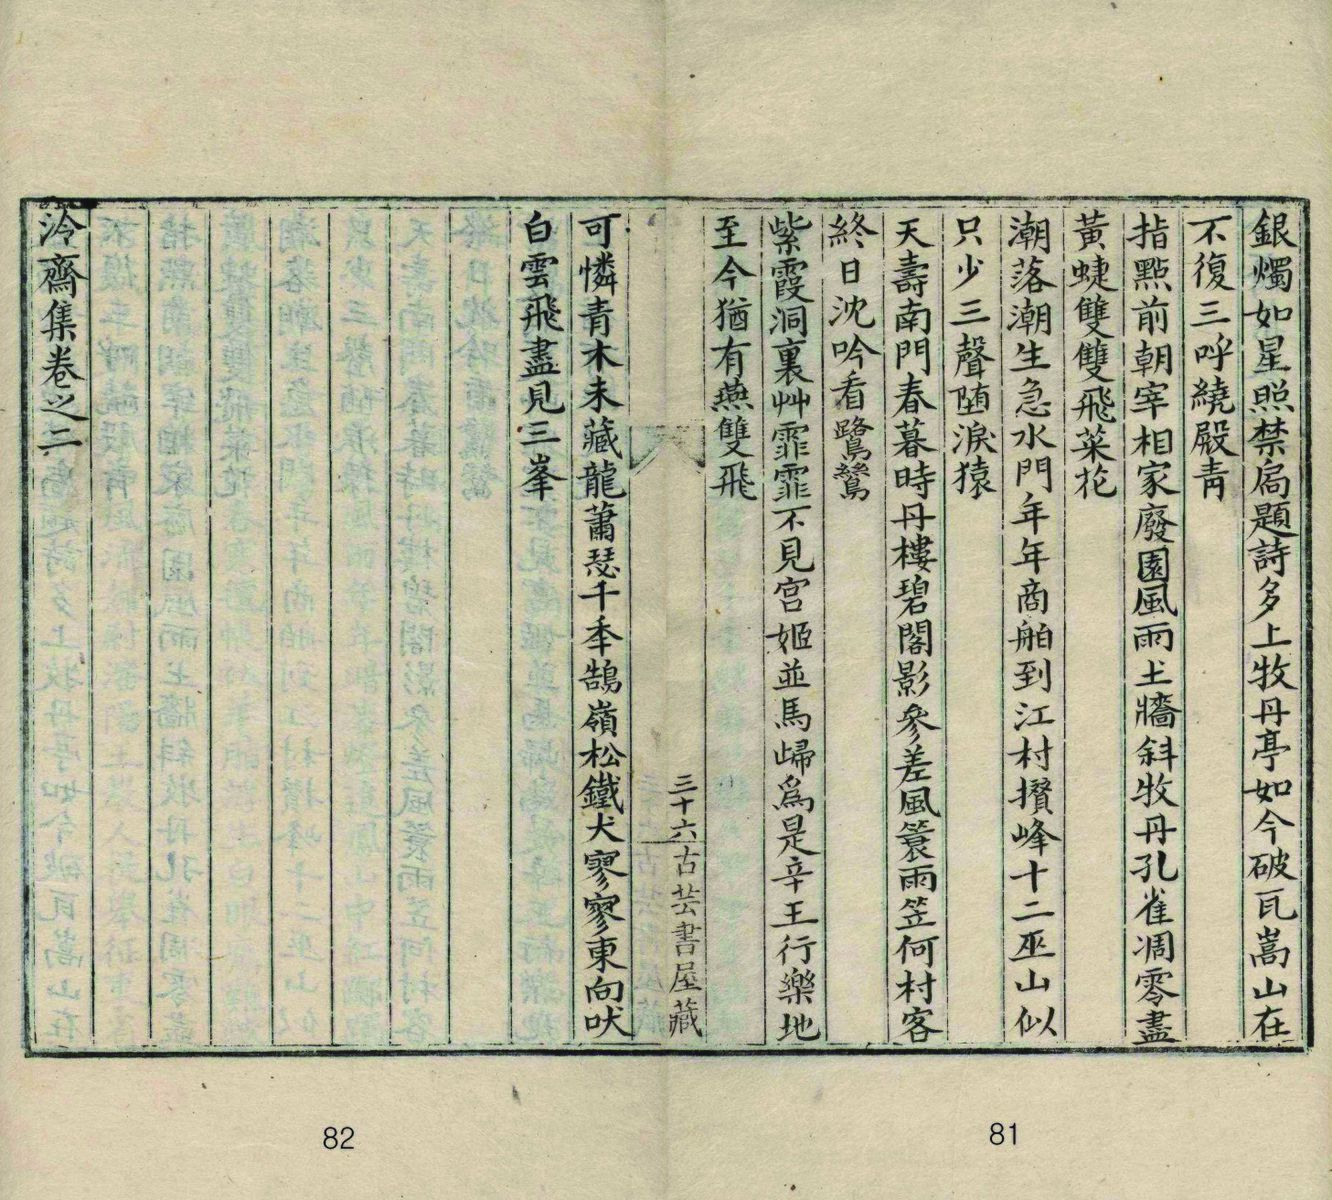 銀燭如星照禁扃題詩多上牧丹亭如今破瓦嵩山在
不復三呼繞殿靑
指點前朝宰相家廢園風雨土牆斜牧丹孔雀凋零盡
黃蜨雙雙飛菜花
潮落潮生急水門年年商舶到江村攢峰十二巫山似
只少三聲堕淚猿
天壽南門春暮時丹樓碧閣影參差風簑雨笠何村客
終日沈吟看鷺鷥
紫霞洞裏艸霏霏不見宮姬並馬歸爲是辛王行樂地
至今猶有燕雙飛
三十六
古芸書屋藏
可憐青木未藏龍蕭瑟千秊鵠嶺松鐵犬寥寥東向吠
白雲飛盡見三峯
泠齋集卷之二
81
82